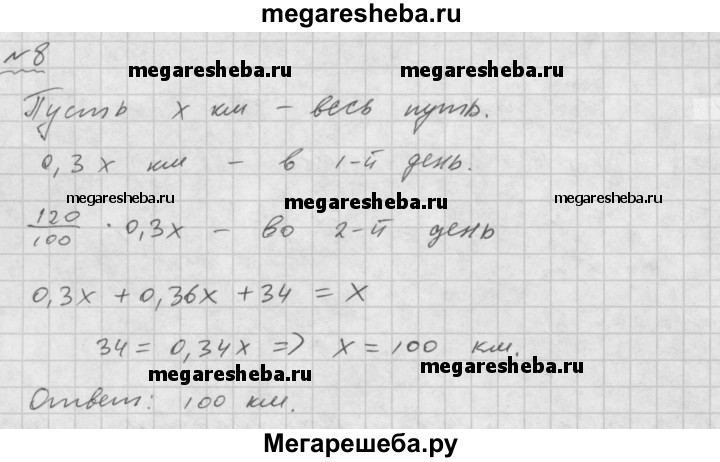 megaresheba.ru
№8
megaresheba.ru megaresheba.ru
Пусть x км – весь путь.
0,3x км – в 1-й день.
megaresheba.ru megaresheba.ru megaresheba.ru
120/100 · 0,3x – во 2-й день
0,3x + 0,36x + 34 = x
34 = 0,34x => x = 100 км.
megaresheba.ru megaresheba.ru
Ответ: 100 км.
Мегарешеба.ру